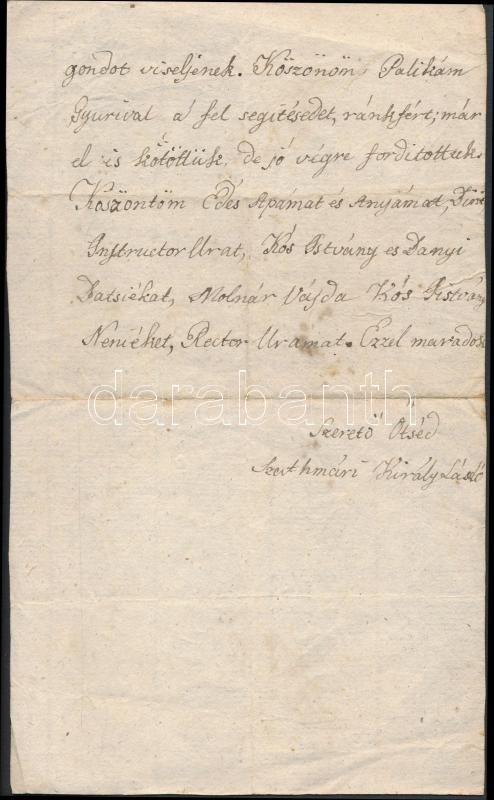 gondot viseljének. Köszönöm, Palikám
Gyurival a' fel segitésedet, ránkfért; már
el is kötöttük, de jó végre forditottuk.
Köszöntöm Édes Apámat és Anyámat,
Instructor Urat, Kós Istvány es Danyi
Batsiékat, Molnár Vajda Kós Istvány
Neniéket, Rector Uramat. Ezzel maradok
darabanth
Szerető Ötséd
Szathmári Király László